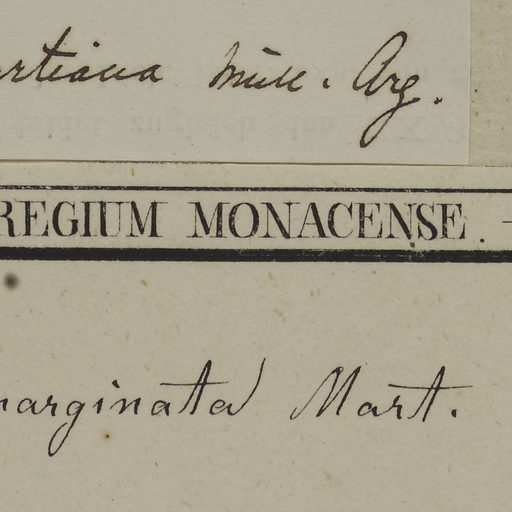 rtiana Müll. Arg.
REGIUM MONACENSE. –
marginata Mart.